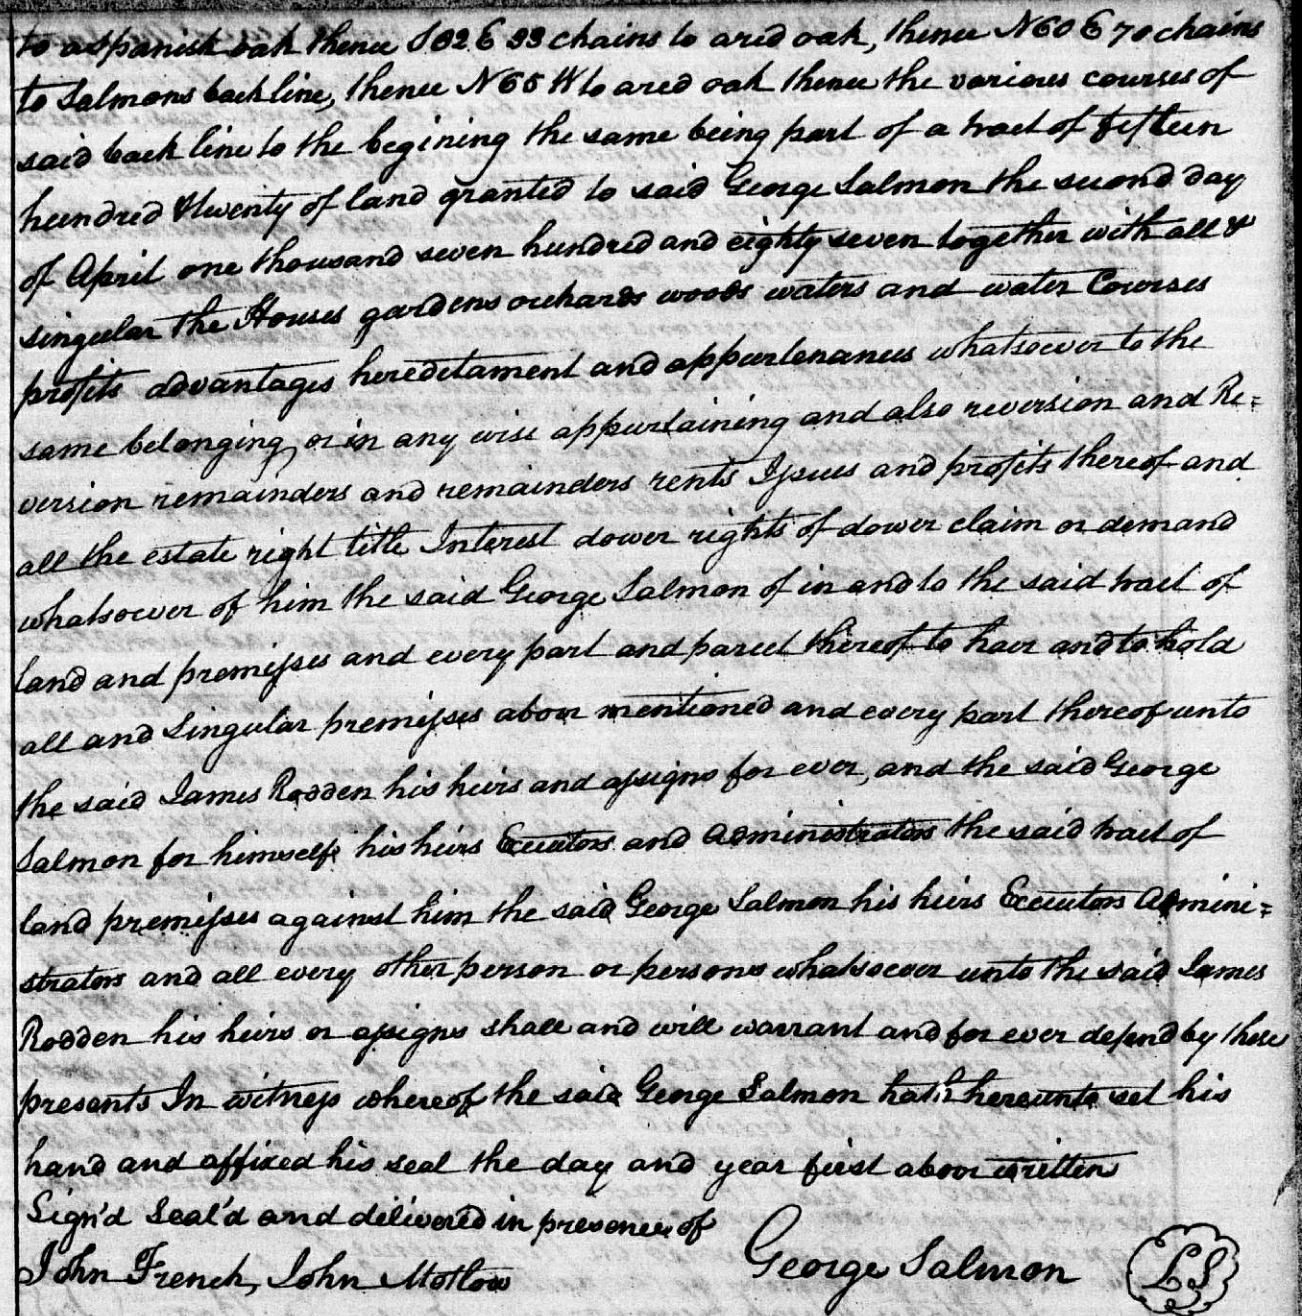 to a Spanish oak thence S 82 E 33 chains to a red oak, thence N 60 E 70 chains
to Salmons back line, thence N 65 W to a red oak thence the various courses of
said back line to the begining the same being part of a tract of fifteen
hundred & twenty of land granted to said George Salmon the second day
of April one thousand seven hundred and eighty seven together with all &
singular the Houses gardens orchards woods waters and water Courses
profits advantages hereditament and appurtenances whatsoever to the
same belonging or in any wise appurtaining and also reversion and Re=
version remainders and remainders rents Issues and profits thereof and
all the estate right title Interest dower rights of dower claim or demand
whatsoever of him the said George Salmon of in and to the said tract of
land and premisses and every part and parcel thereof to have and to hold
all and Singular premisses above mentioned and every part thereof unto
the said James Rodden his heirs and assigns for ever, and the said George
Salmon for himself his heirs Executors and Administrators the said tract of
land premisses against him the said George Salmon his heirs Executors Admini=
strators and all every other person or persons whatsoever unto the said James
Rodden his heirs or assigns shall and will warrant and for ever defend by these
presents In witness whereof the said George Salmon hath hereunto set his
hand and affixed his seal the day and year first above written
Sign'd Seal'd and delivered in presence of
John French, John Motlow George Salmon LS